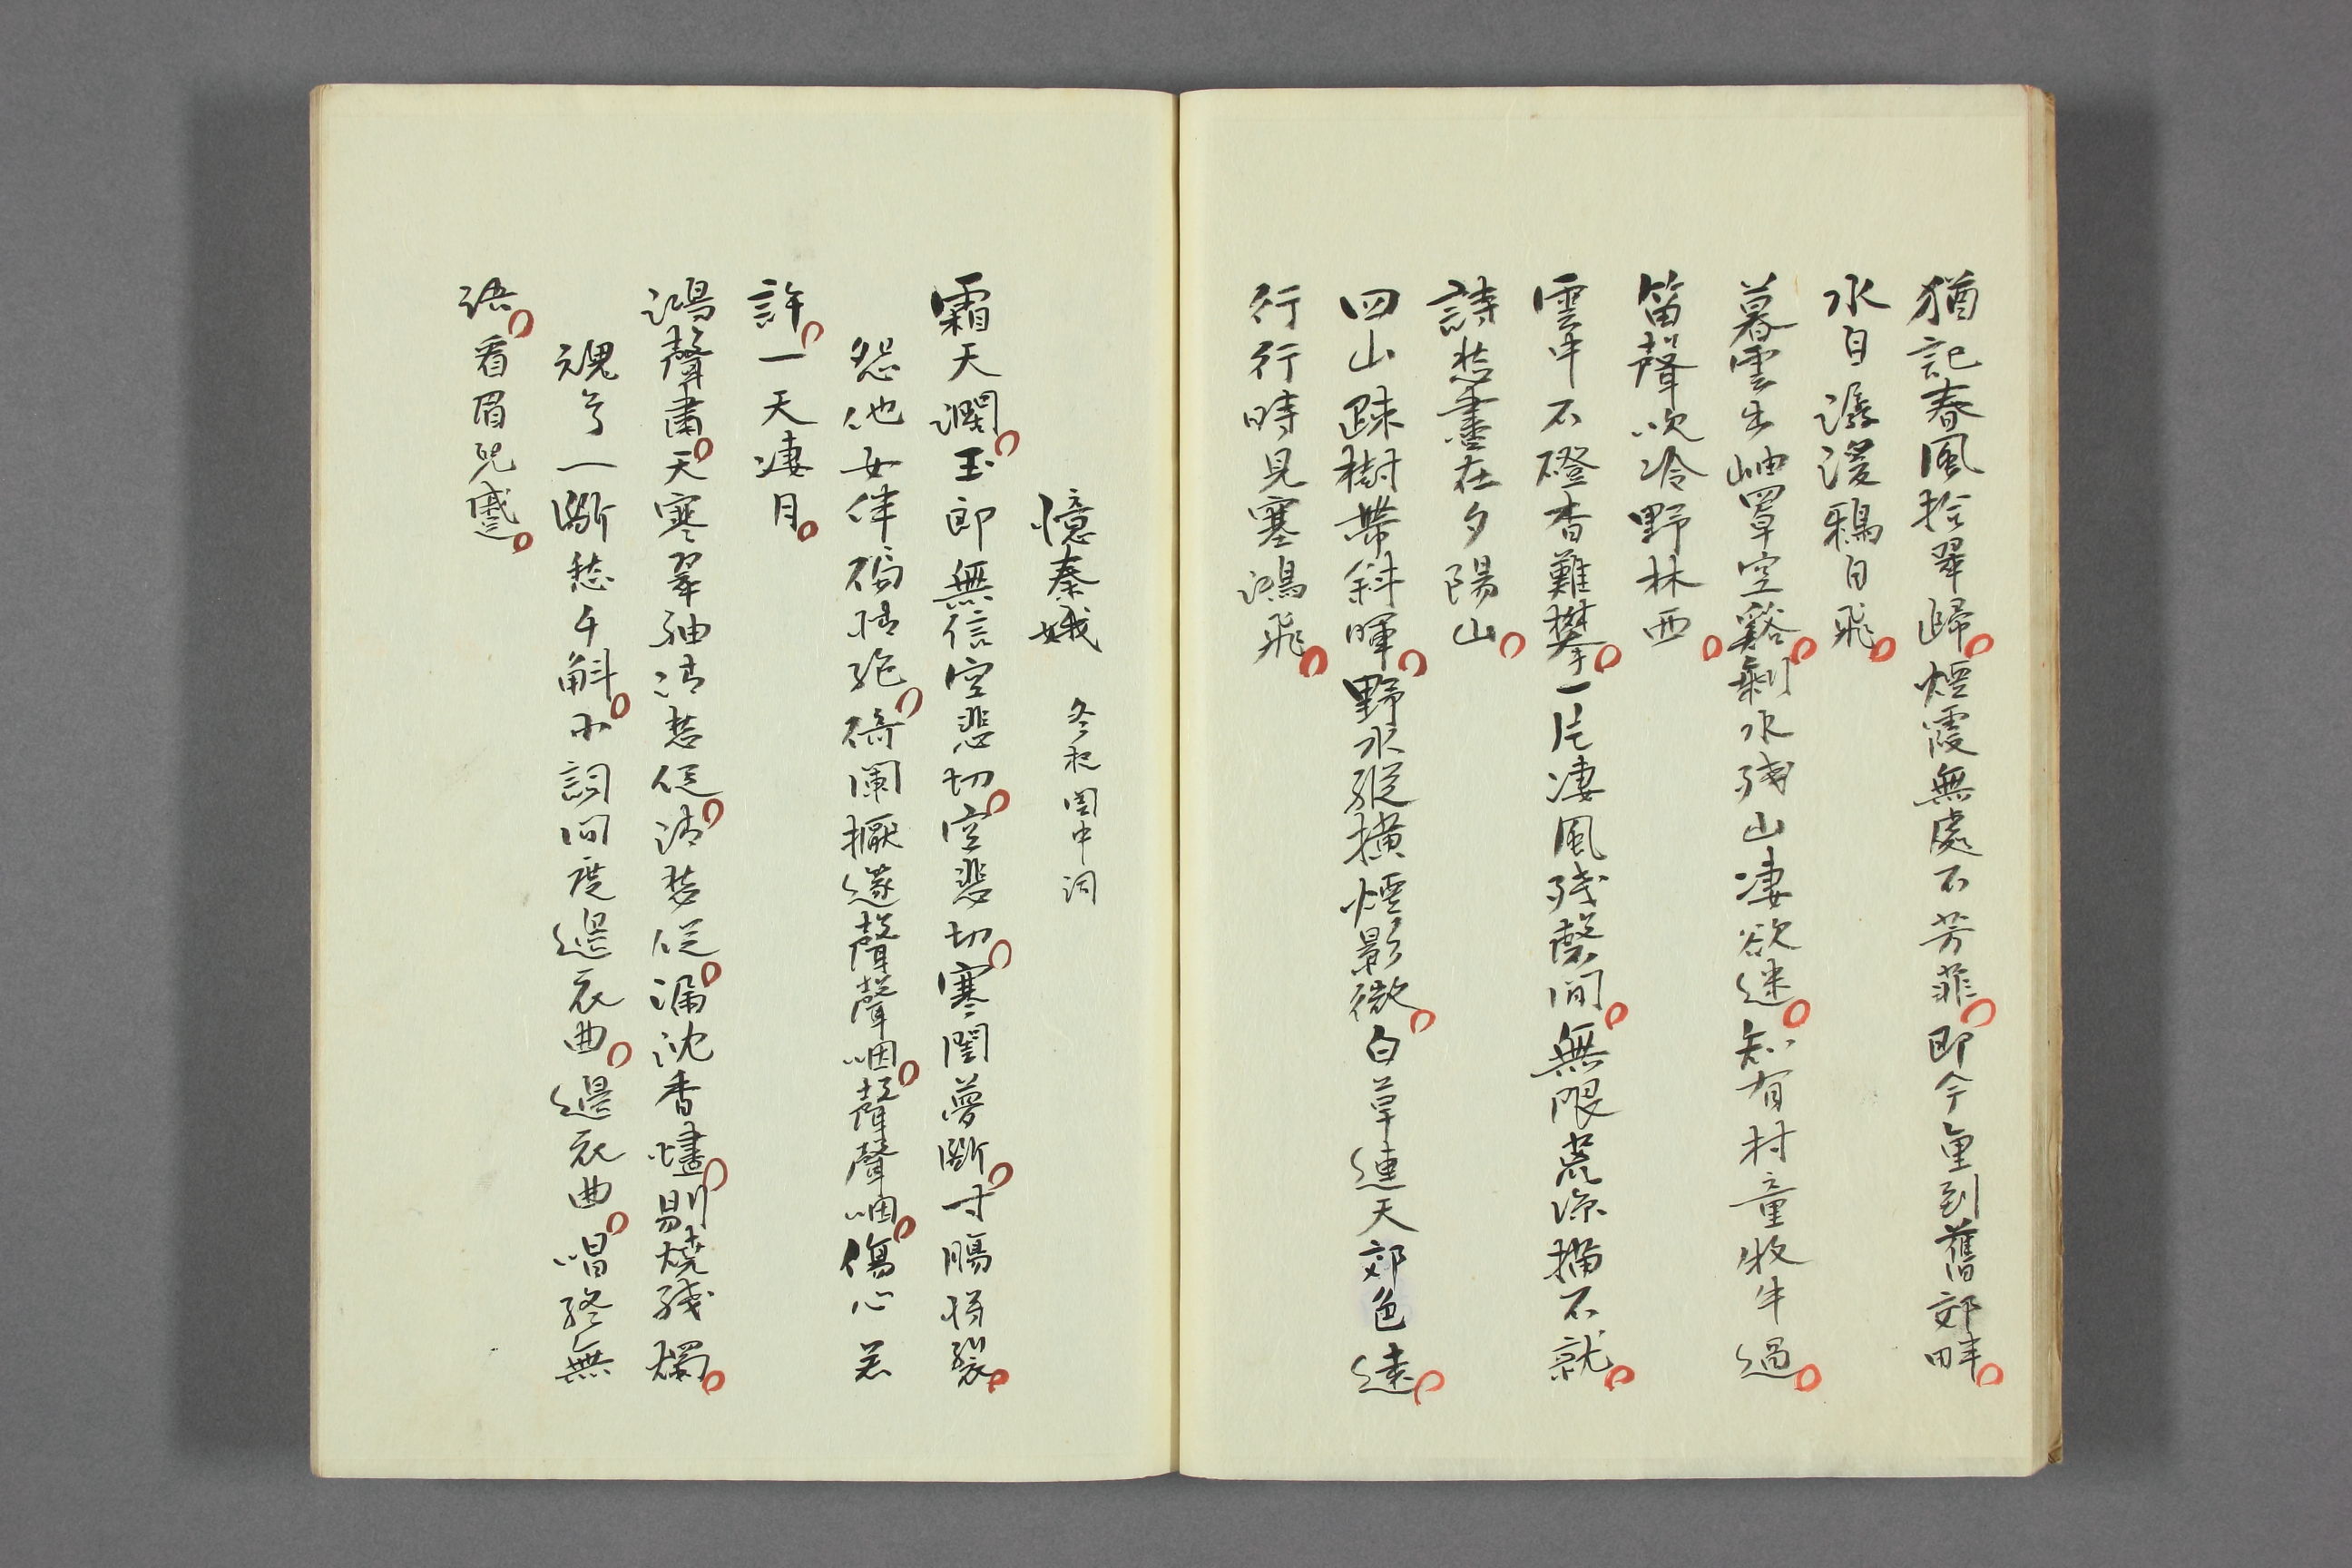 猶記春風拾翠歸煙霞無處不芳菲即今重到舊郊畔
水自潺湲鴉自飛
暮雲出岫罩空谿剩水殘山淒欲迷知有村童牧牛過
笛聲吹冷野林西
雲中石磴杳難攀一片淒風殘磬間無限荒涼描不就
詩愁畫在夕陽山
四山疎樹帶斜暉野水縱橫煙影微白草連天郊色遠
行行時見塞鴻飛
憶秦娥 冬夜閨中詞
霜天濶玉郎無信空悲切空悲切寒閨夢斷寸腸將裂
怨他女伴絕倚闌擫邃聲聲咽聲聲咽傷心若
許一天淒月
鴻聲肅天寒翠袖清愁促清愁促漏沈香燼剔燒殘燭
魂兮一斷愁千斛小詞問度邊衣曲邊衣曲唱終無
語看眉兒蹙